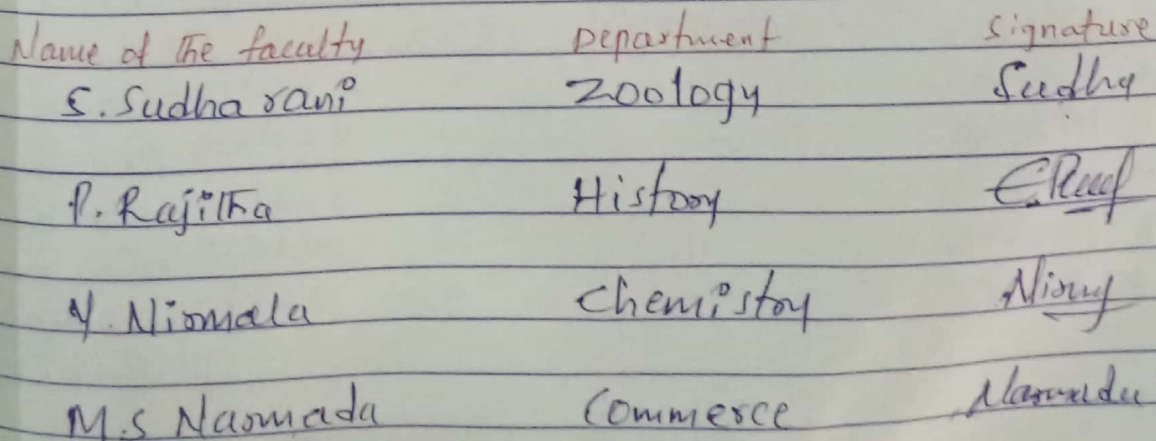 Name of the faculty Department Signature
S. Sudha rani Zoology Sudha
P. Rajitha History
Y. Nirmala Chemistry
M.S Narmada Commerce Narmada